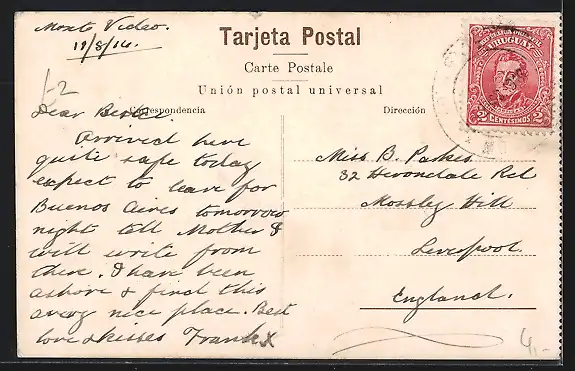 Monte Video.
11/8/14.
Tarjeta Postal
Carte Postale
Unión postal universal
Correspondencia
Dirección
URUGUAY
2 CENTÉSIMOS 2
Dear
Arrived here
quite safe today
expect to leave for
Buenos Aires tomorrow
night till Mother &
will write from
there. I have been
ashore & find this
a very nice place. Best
love & kisses Frank x
Miss B. Parkes
32 Devondale Rd
Mossley Hill
Liverpool.
England.
£2
4,-